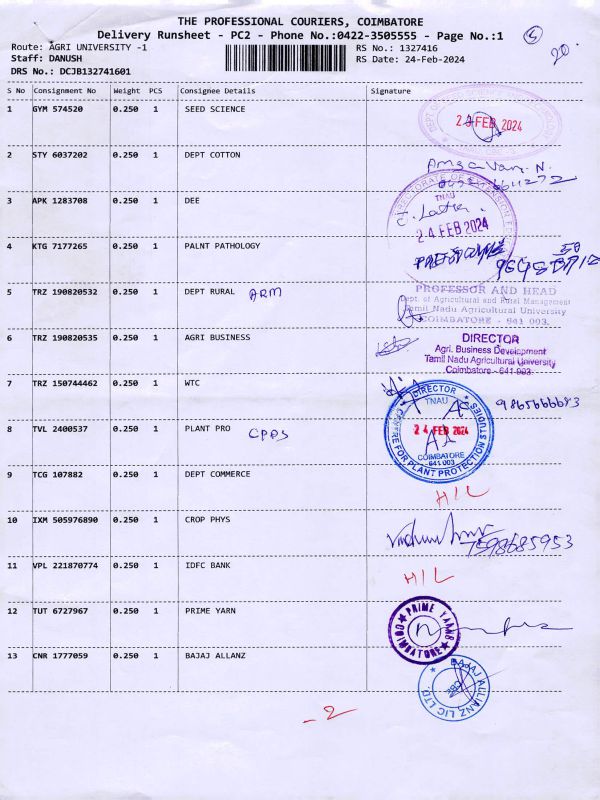 THE PROFESSIONAL COURIERS, COIMBATORE
Delivery Runsheet - PC2 - Phone No.:0422-3505555 - Page No.:1
Route: AGRI UNIVERSITY -1 RS No.: 1327416
Staff: DANUSH RS Date: 24-Feb-2024
DRS No.: DCJB132741601
20
S No Consignment No Weight PCS Consignee Details Signature
1 GYM 574520 0.250 1 SEED SCIENCE
FEB 2024
2 STY 6037202 0.250 1 DEPT COTTON
3 APK 1283708 0.250 1 DEE
DIRECTORATE OF EXTENSION
TNAU
24 FEB 2024
4 KTG 7177265 0.250 1 PALNT PATHOLOGY
5 TRZ 190820532 0.250 1 DEPT RURAL ARM
PROFESSOR AND HEAD
Dept. of Agricultural and Rural Management
Tamil Nadu Agricultural University
COIMBATORE - 641 003.
6 TRZ 190820535 0.250 1 AGRI BUSINESS
DIRECTOR
Agri. Business Development
Tamil Nadu Agricultural University
Coimbatore - 641 003.
7 TRZ 150744462 0.250 1 WTC
8 TVL 2400537 0.250 1 PLANT PRO CPPS
DIRECTOR
TNAU
24 FEB 2024
COIMBATORE
641 003
CENTRE FOR PLANT PROTECTION STUDIES
9 TCG 107882 0.250 1 DEPT COMMERCE
H/L
10 IXM 505976890 0.250 1 CROP PHYS
7598685953
11 VPL 221870774 0.250 1 IDFC BANK
H/L
12 TUT 6727967 0.250 1 PRIME YARN
PRIME YARNS
COIMBATORE
13 CNR 1777059 0.250 1 BAJAJ ALLANZ
BAJAJ ALLIANZ LIC LTD.
-2